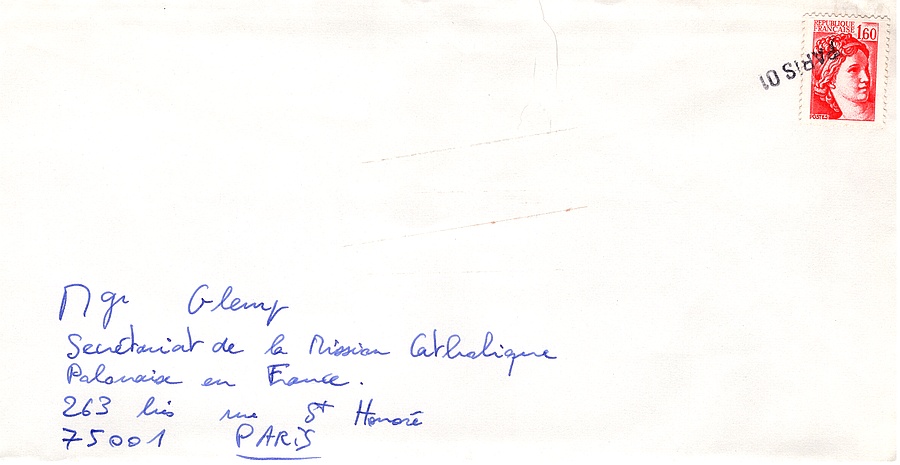 REPUBLIQUE
FRANÇAISE 1,60
PARIS 01
POSTES
Mgr Glemp
Secrétariat de la Mission Catholique
Polonaise en France.
263 bis rue St Honoré
75001 PARIS